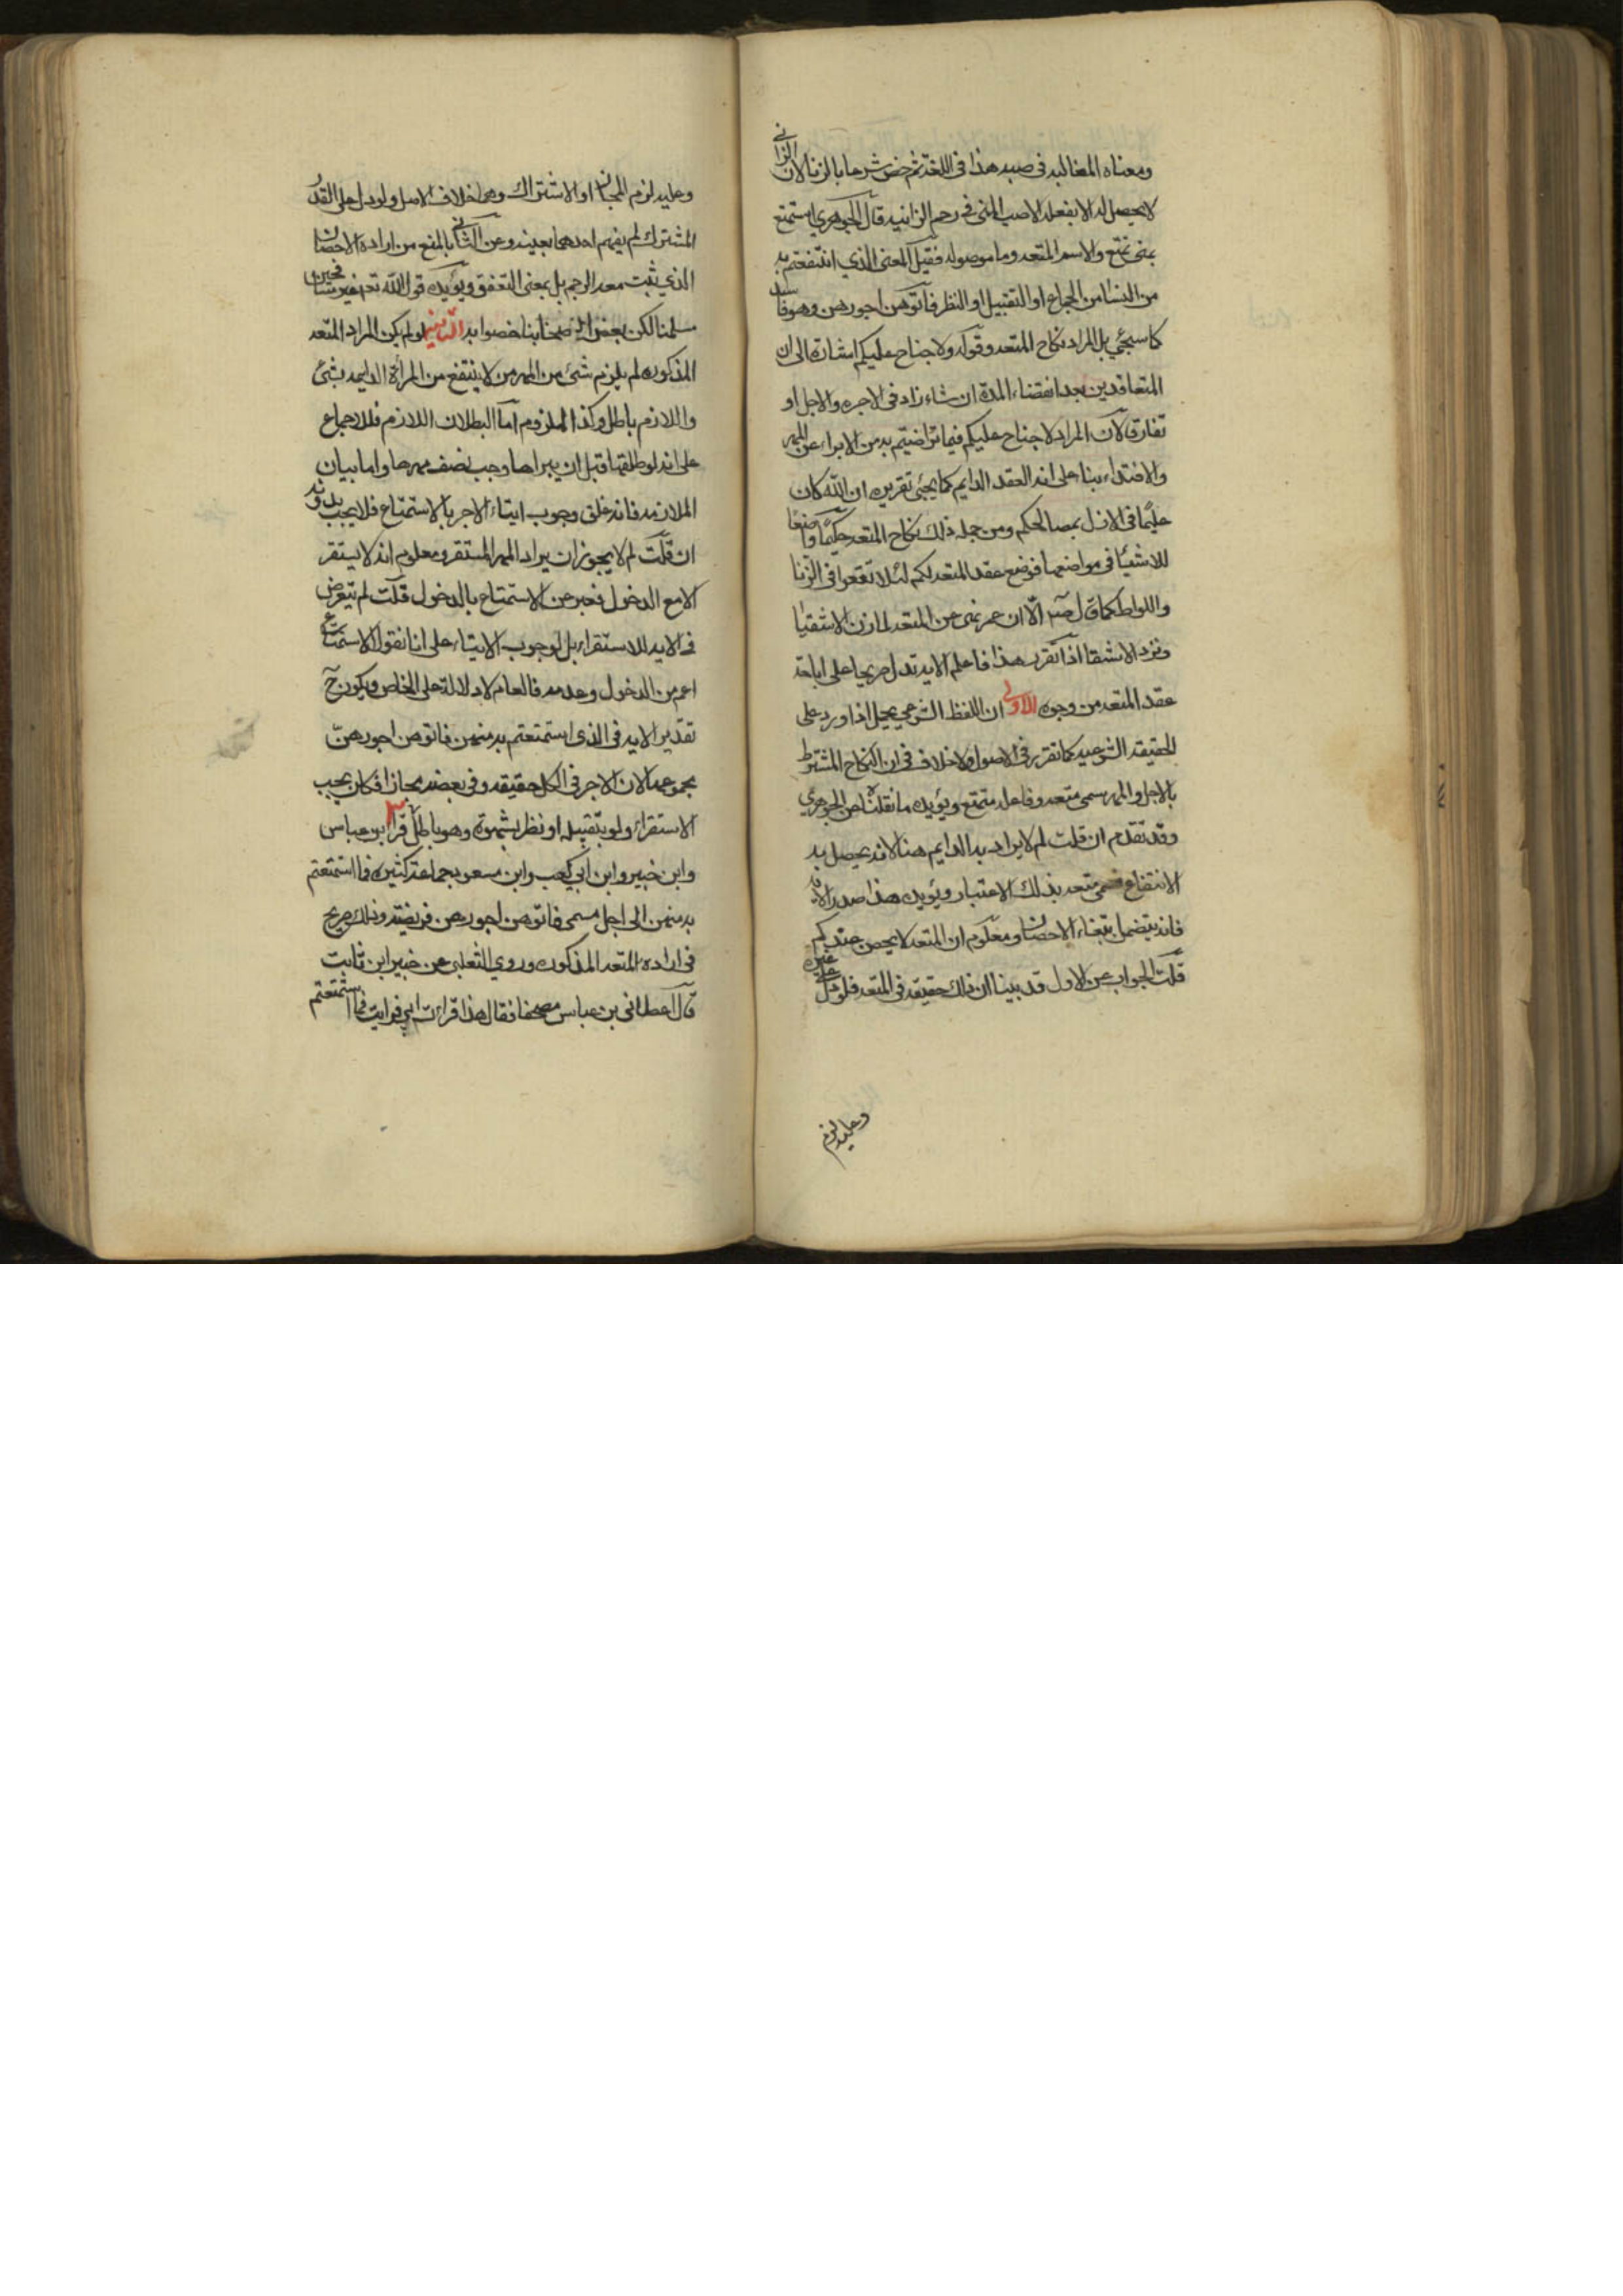 ومعناه المغالبه فى صبه هذا فى اللغة ثم خص شرعا بالزنا لان الزانى
لا يحصل له الا بفعله الا صب المنى فى رحم الزانيه قال الجوهري استمتع
بمنى تمتع والاسم المتعه وما موصوله فقيل المعنى الذي انتفعتم به
من النسا من الجماع او التقبيل او النظر فآتوهن اجورهن وهو فاسد
كما سيجئ بل المراد نكاح المتعه وقوله ولا جناح عليكم اشارة الى ان
المتعاقدين بعد انقضاء المدة ان شاء زاد فى الاجره والاجل او
تفارقا لان المراد لا جناح عليكم فيما تراضيتم به من الابراء عن المهر
والافتداء بناء على انه العقد الدايم كما يجئ تقريره ان الله كان
عليمًا فى الازل بمصالحكم ومن جمله ذلك نكاح المتعه حكيمًا واضعًا
للاشيا فى مواضعها فوضع عقد المتعه لكم لئلا تقعوا فى الزنا
واللواط كما قال الا ان عمر نهى عن المتعه لما زنى الاشقيا
ونزد الاشقا اذا تقرر هذا فاعلم الايه تدل صريحا على اباحة
عقد المتعه من وجوه الاولى ان اللفظ الشرعي يحمل اذا ورد على
الحقيقه الشرعيه كما تقرر فى الاصول ولا خلاف فى ان النكاح المشترط
بالاجل والمهر سمى متعه وفاعله متمتع ويؤيده ما نقلناه عن الجوهري
وقد تقدم ان قلت لم لا يراد به الدايم هنا لانه يحصل به
الانتفاع فسمى متعه بذلك الاعتبار ويؤيد هذا صدر الايه
فانه يتضمن ابتغاء الاحصان ومعلوم ان المتعه لا يحصن عندكم
قلت الجواب عن الاول قد بينا ان ذلك حقيقه فى المتعه فلو حمل على غيره
وعليه لزم
وعليه لزم المجاز او الاشتراك وهما خلاف الاصل ولو دل على القدر
المشترك لم يفهم احدهما بعينه وعن الثانى بالمنع من اراده الاحصان
الذي ثبت معه الرجم بل بمعنى التعفف ويؤيده قول الله تعالى غير مسافحين
سلمنا لكن بعض اصحابنا خصوا به الثانيه لو لم يكن المراد المتعه
المذكوره لم يلزم شئ من المهر من لا ينتفع من المرأة الدايمه بشئ
واللازم باطل وكذا الملزوم اما البطلان اللازم فللاجماع
على انه لو طلقها قبل ان يراها وجب نصف مهرها واما بيان
الملازمه فانه علق وجوب ايتاء الاجر بالاستمتاع فلا يجب بدونه
ان قلت لم لا يجوز ان يراد المهر المستقر ومعلوم انه لا يستقر
الا مع الدخول فعبر عن الاستمتاع بالدخول قلت لم يتعرض
فى الايه للاستقراء بل لوجوب الايتاء على انا نقول الاستمتاع
اعم من الدخول وعدمه فالعام لا دلالة على الخاص ويكون ح
تقدير الايه فى الذى استمتعتم به منهن فاتوهن اجورهن
بمجموعه لان الاجر فى الكل حقيقه وفى بعضه مجازا فكان يجب
الاستقراء ولو بتقبيله او نظر بشهوة وهو باطل قرا ابن عباس
وابن جبير وابن ابي كعب وابن مسعود وجماعة كثيره فما استمتعتم
به منهن الى اجل مسمى فاتوهن اجورهن فريضة وذلك صريح
فى اراده المتعه المذكوره وروي الثعلبى عن خبير ابن ثابت
قال اعطانى بن عباس مصحفا فقال هذا قراءت ابي فرايت فما استمتعتم